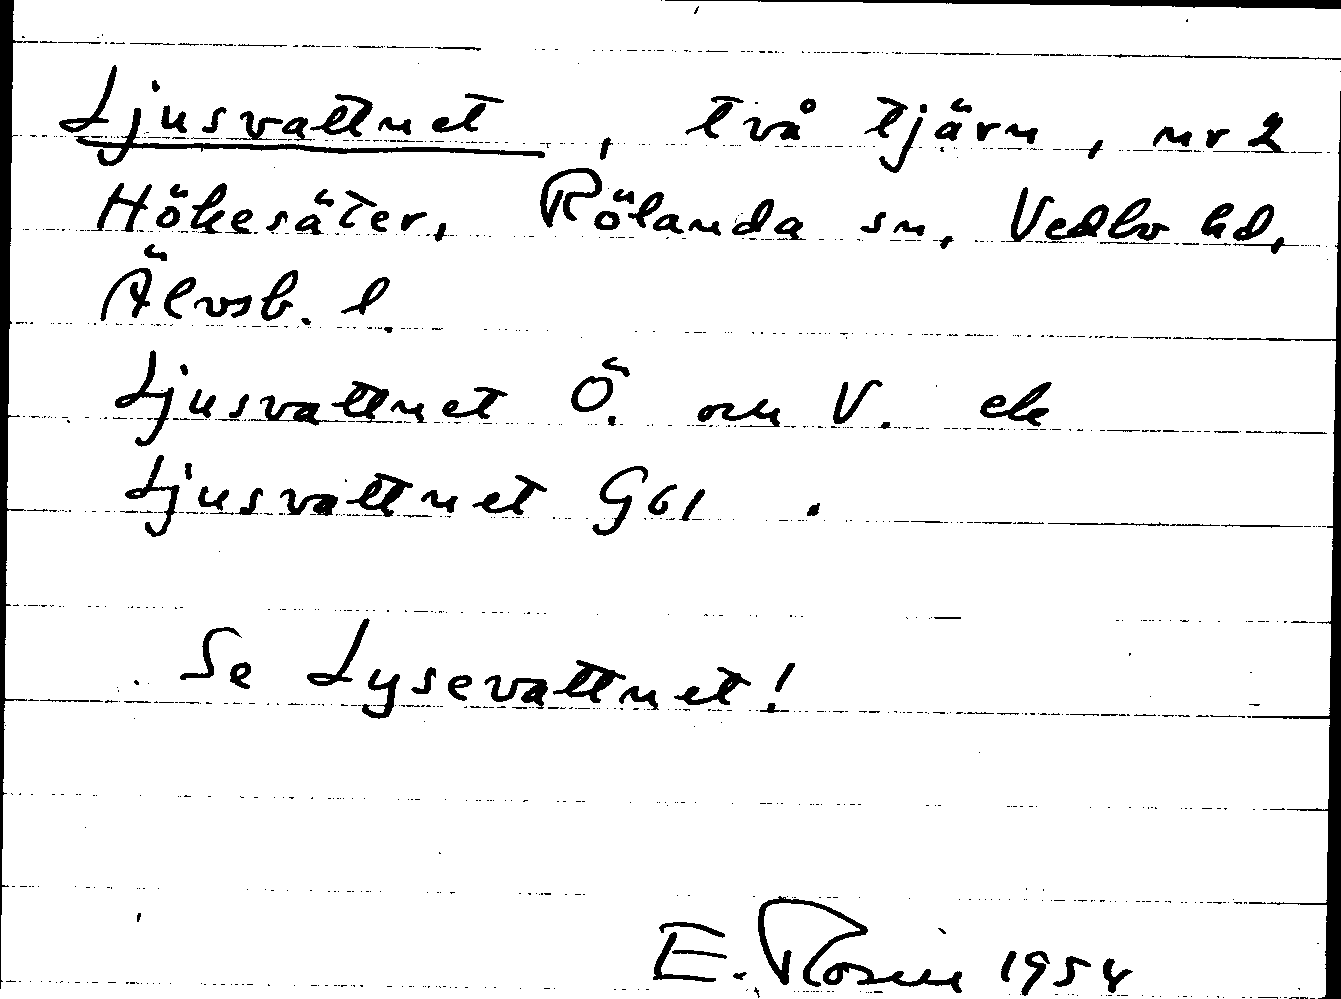 Ljusvattnet, två tjärn, nr 2
Hökesäter, Rölanda sn, Vedbo hd,
Älvsb. l.
Ljusvattnet Ö. och V. ek
Ljusvattnet G61.
Se Lysevattnet!
E. Rosin 1954